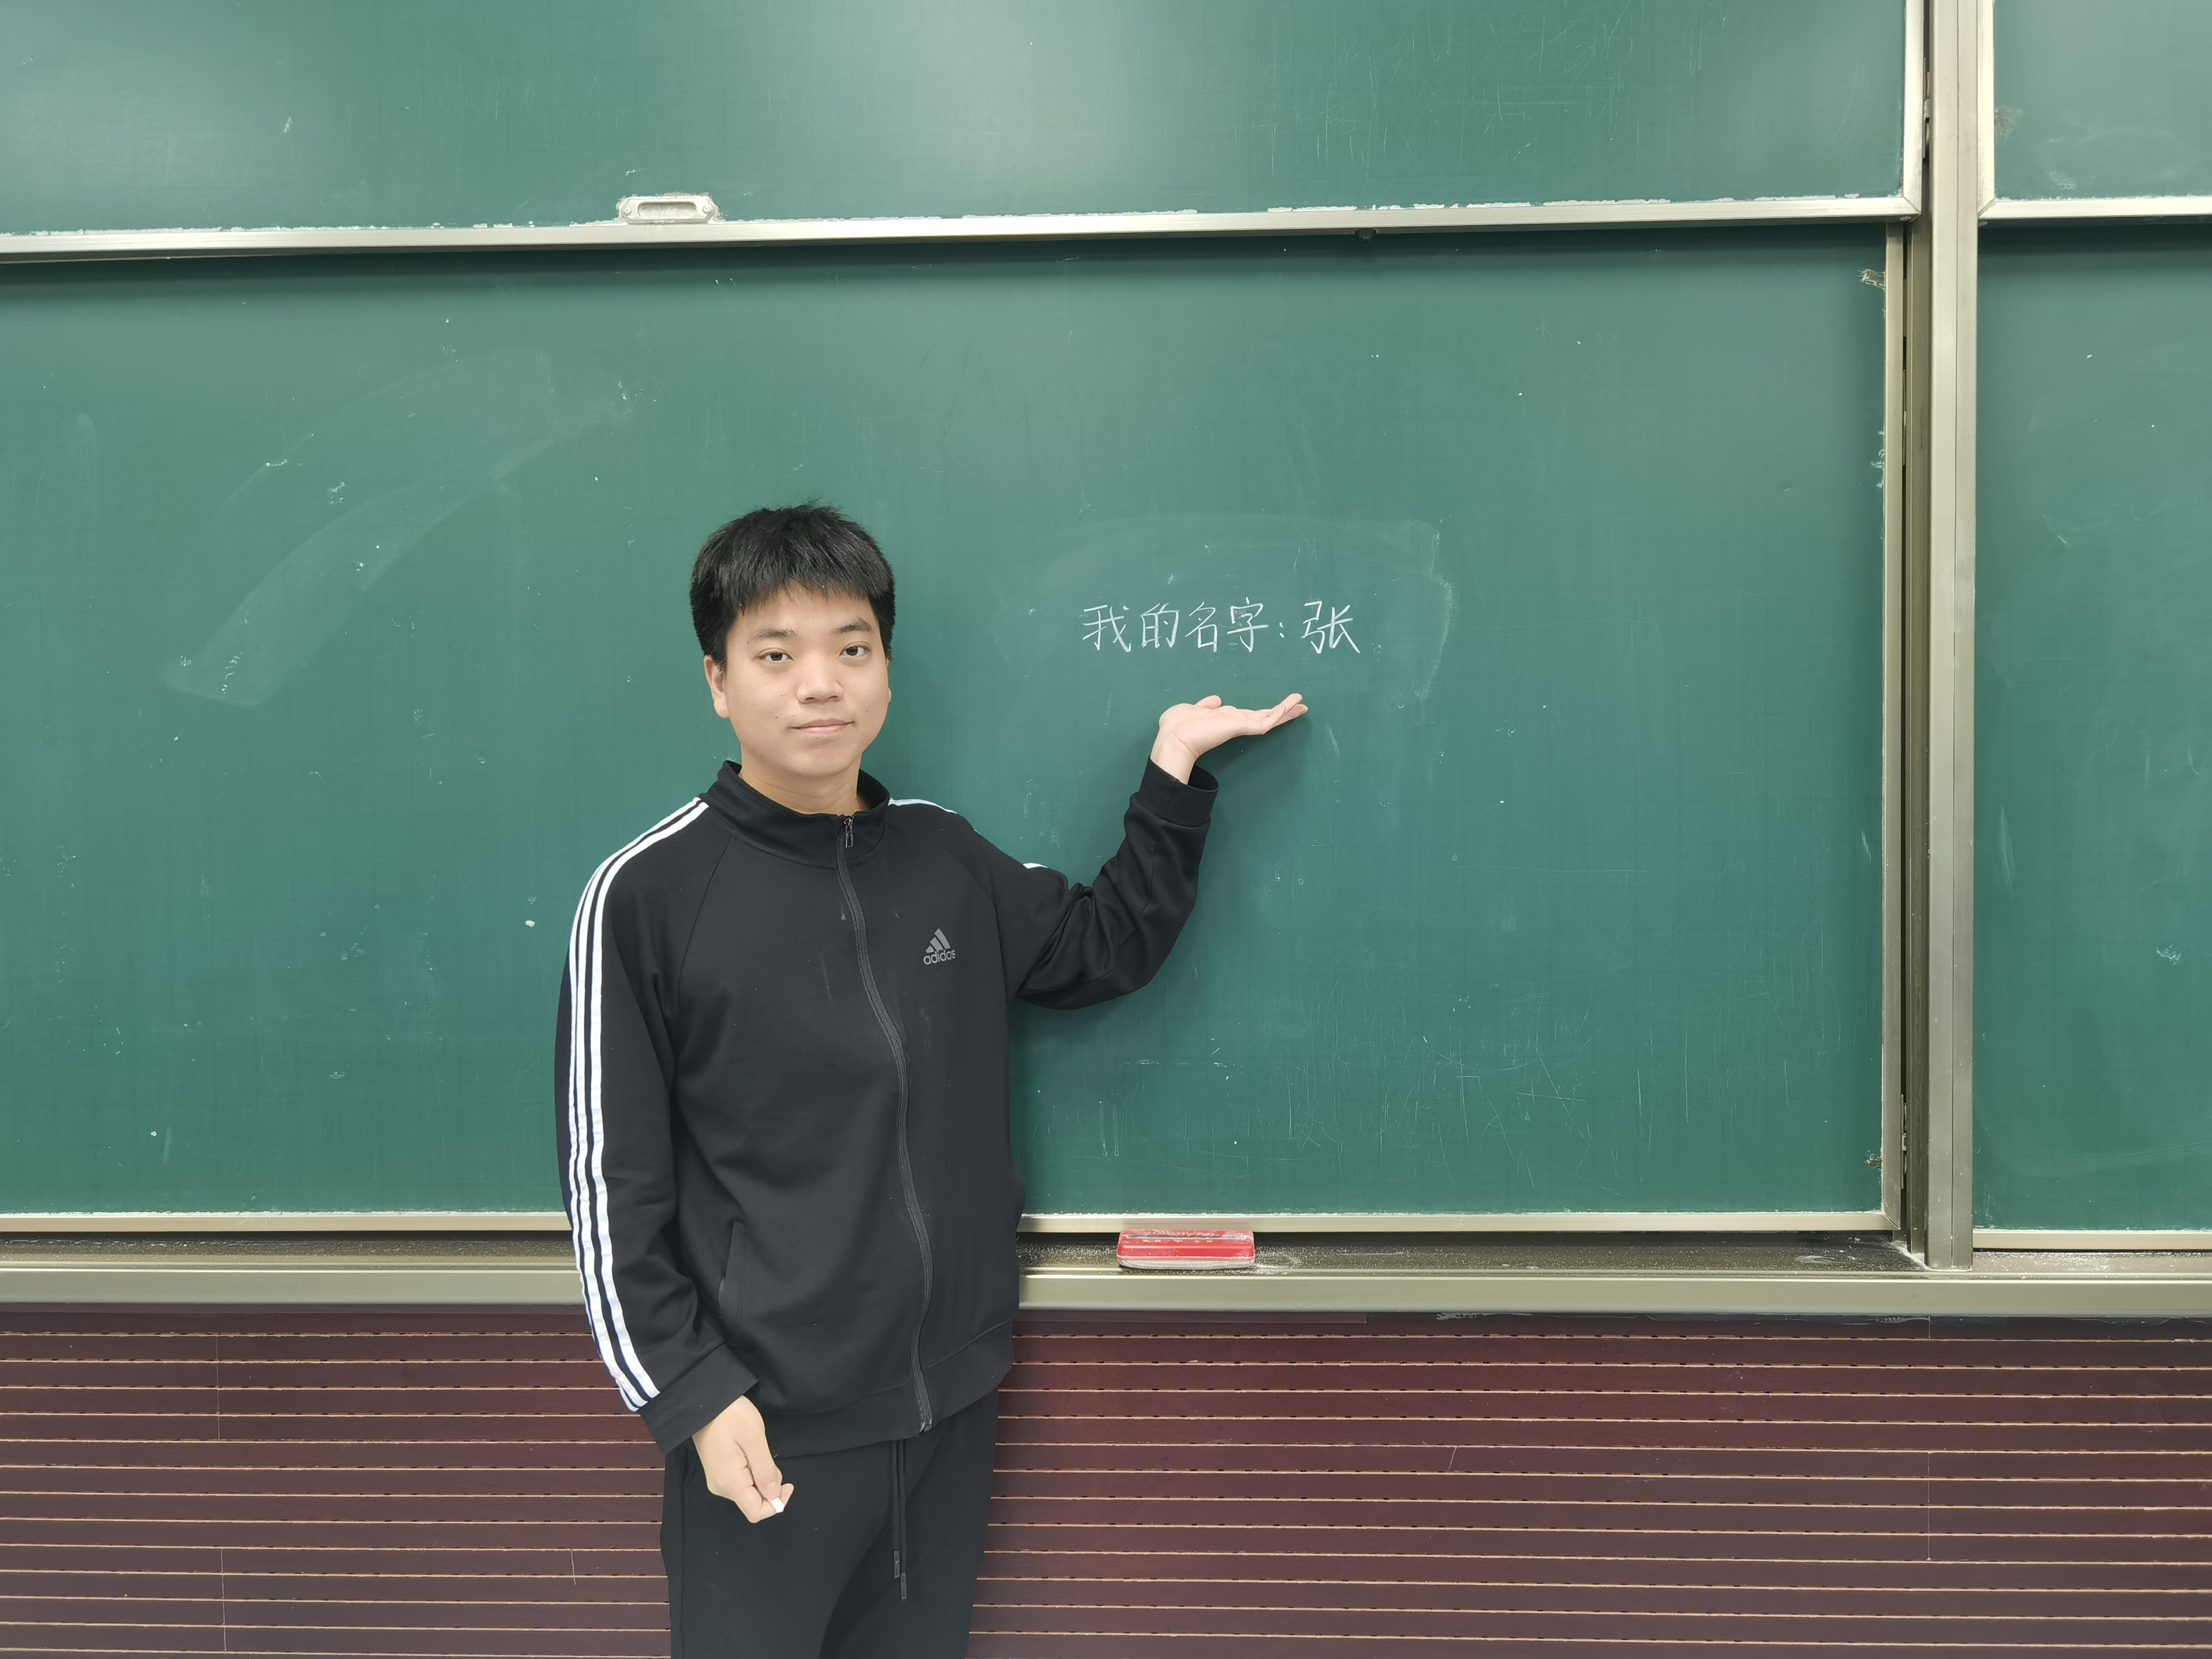 我的名字：张
adidas